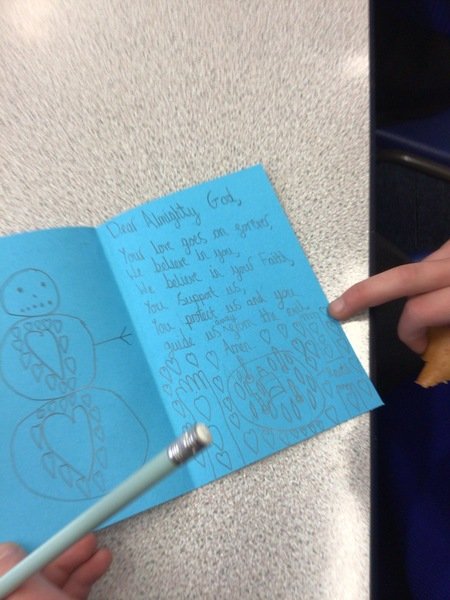 Dear Almighty God,
Your love goes on forever,
We believe in you,
We believe in your Faith,
You support us,
You protect us and you
guide us away from the evil
Amen